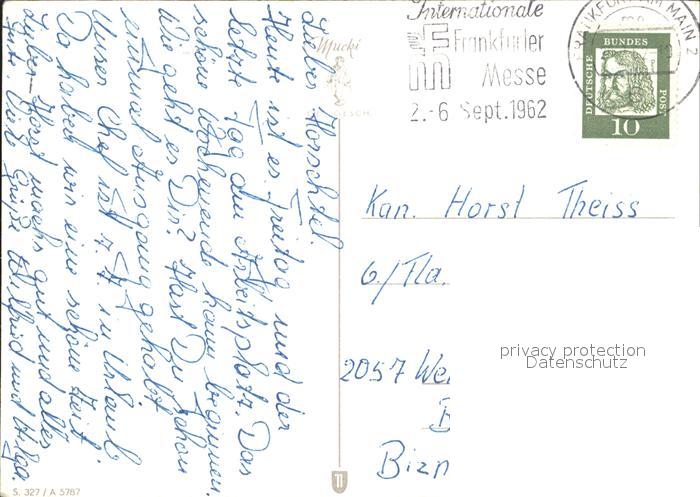 Lieber Horschtel.
Heute ist es Freitag und der
letzte Tag am Arbeitsplatz. Das
schöne Wochenende kann kommen.
Wie geht es Dir? Hast Du schon
einmal Ausgang gehabt
Unser Chef ist z. Zt. in Urlaub
Da haben wir eine schöne Zeit.
Lieber Horst machs gut und alles
Gute. Viele Grüße Wilfried und Helga
Mucki
Internationale
Frankfurter
Messe
2.-6 Sept. 1962
FRANKFURT AM MAIN 2
DEUTSCHE BUNDES POST
10
Kan. Horst Theiss
6./Fla.
2057 We
Bizn
privacy protection
Datenschutz
S. 327 / A 5787